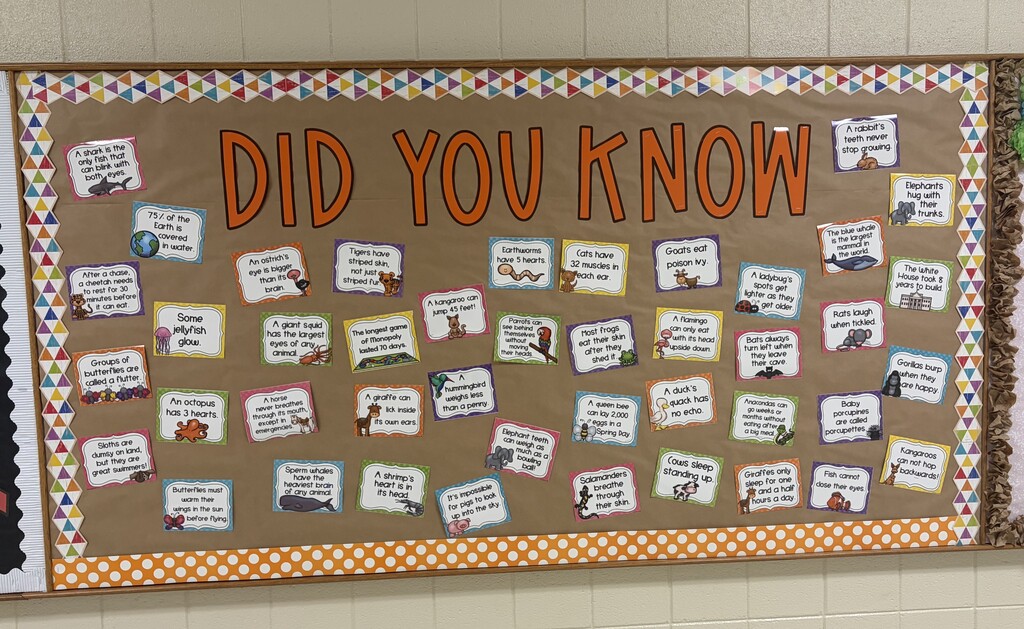 DID YOU KNOW
A shark is the
only fish that
can blink with
both eyes.
75% of the
Earth is
covered
in water.
After a chase,
a cheetah needs
to rest for 30
minutes before
it can eat.
Some
jellyfish
glow.
Groups of
butterflies are
called a flutter.
An octopus
has 3 hearts.
Sloths are
clumsy on land,
but they are
great swimmers!
Butterflies must
warm their
wings in the sun
before flying.
An ostrich's
eye is bigger
than its
brain.
Tigers have
striped skin,
not just
striped fur.
A giant squid
has the largest
eyes of any
animal.
The longest game
of Monopoly
lasted 70 days.
A horse
never breathes
through its mouth,
except in
emergencies.
A giraffe can
lick inside
its own ears.
Sperm whales
have the
heaviest
brain of any
animal.
A shrimp's
heart is in
its head.
A kangaroo can
jump 45 feet!
A
hummingbird
weighs less
than a penny.
It's impossible
for pigs to look
up into the sky.
Earthworms
have 5 hearts.
Cats have
32 muscles in
each ear.
Parrots can
see behind
themselves
without
moving
their heads.
Most frogs
eat their skin
after they
shed it.
Elephant teeth
can weigh as
much as a
bowling
ball!
A queen bee
can lay 2,000
eggs in a
Spring Day.
Salamanders
breathe
through
their
skin.
Goats eat
poison ivy.
A flamingo
can only eat
with its head
upside down.
A duck's
quack has
no echo.
Cows sleep
standing up.
A ladybug's
spots get
lighter as they
get older.
Bats always
turn left when
they leave
their cave.
Anacondas can
go weeks or
months without
eating after
a big meal.
Giraffes only
sleep for one
and a half
hours a day.
A rabbit's
teeth never
stop growing.
Elephants
hug with
their
trunks.
The blue whale
is the largest
mammal in
the world.
The White
House took 8
years to build.
Rats laugh
when tickled.
Gorillas burp
when they
are happy.
Baby
porcupines
are called
porcupettes.
Fish cannot
close their eyes.
Kangaroos
can not hop
backwards!